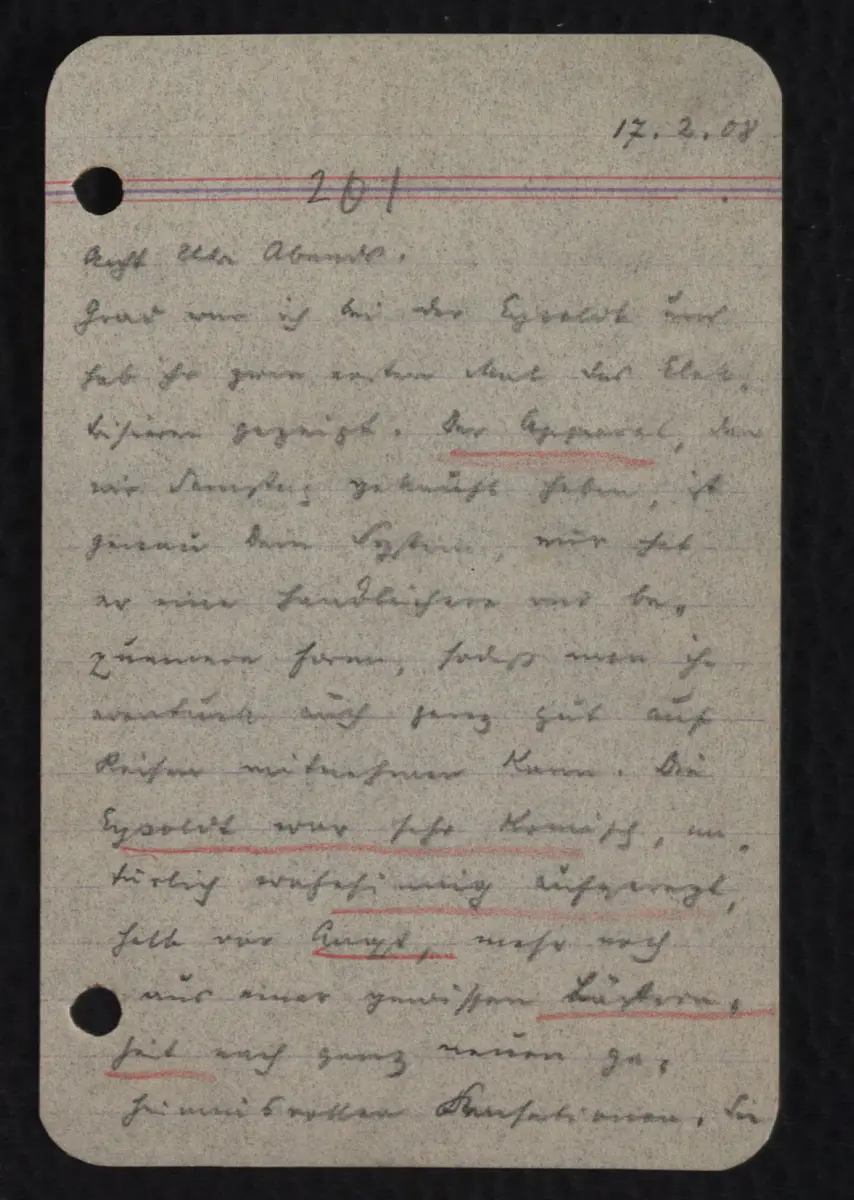 17.2.08
201
Acht Uhr Abends.
Grad war ich bei der Eysoldt und
hab ihr zum ersten Mal das Elek-
trisieren gezeigt. Der Apparat, den
wir Samstag gekauft haben, ist
genau Dein System, nur hat
er eine handlichere und be-
quemere Form, sodass man ihn
eventuell auch ganz gut auf
Reisen mitnehmen kann. Die
Eysoldt war sehr komisch, na-
türlich wahnsinnig aufgeregt,
halb vor Angst, mehr noch
aus einer gewissen Lüstern-
heit nach ganz neuen ge-
heimnisvollen Sensationen. Sie